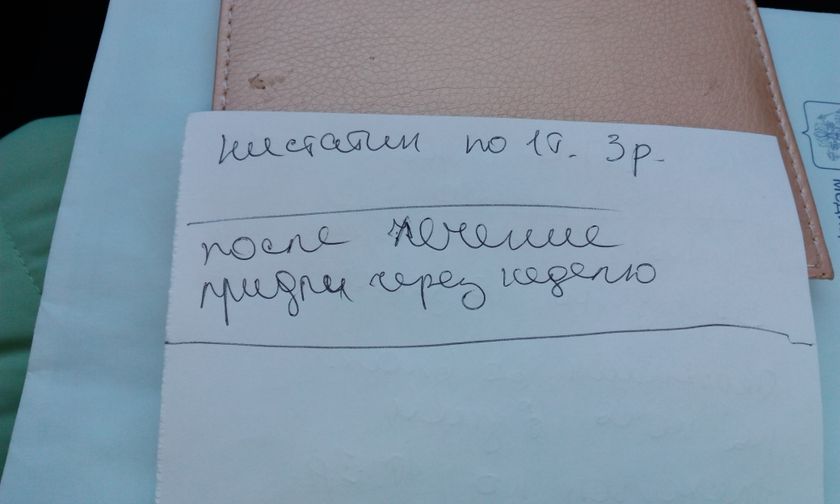 нистатин по 1т. 3р.
после лечение
придти через неделю